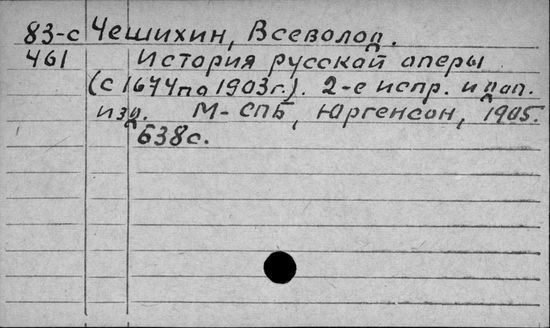 83-с Чешихин, Всеволод.
461 История русской оперы
(с 1674 по 1903 г.). 2-е испр. и доп.
изд. М-СПБ, Юргенсон, 1905.
638 с.